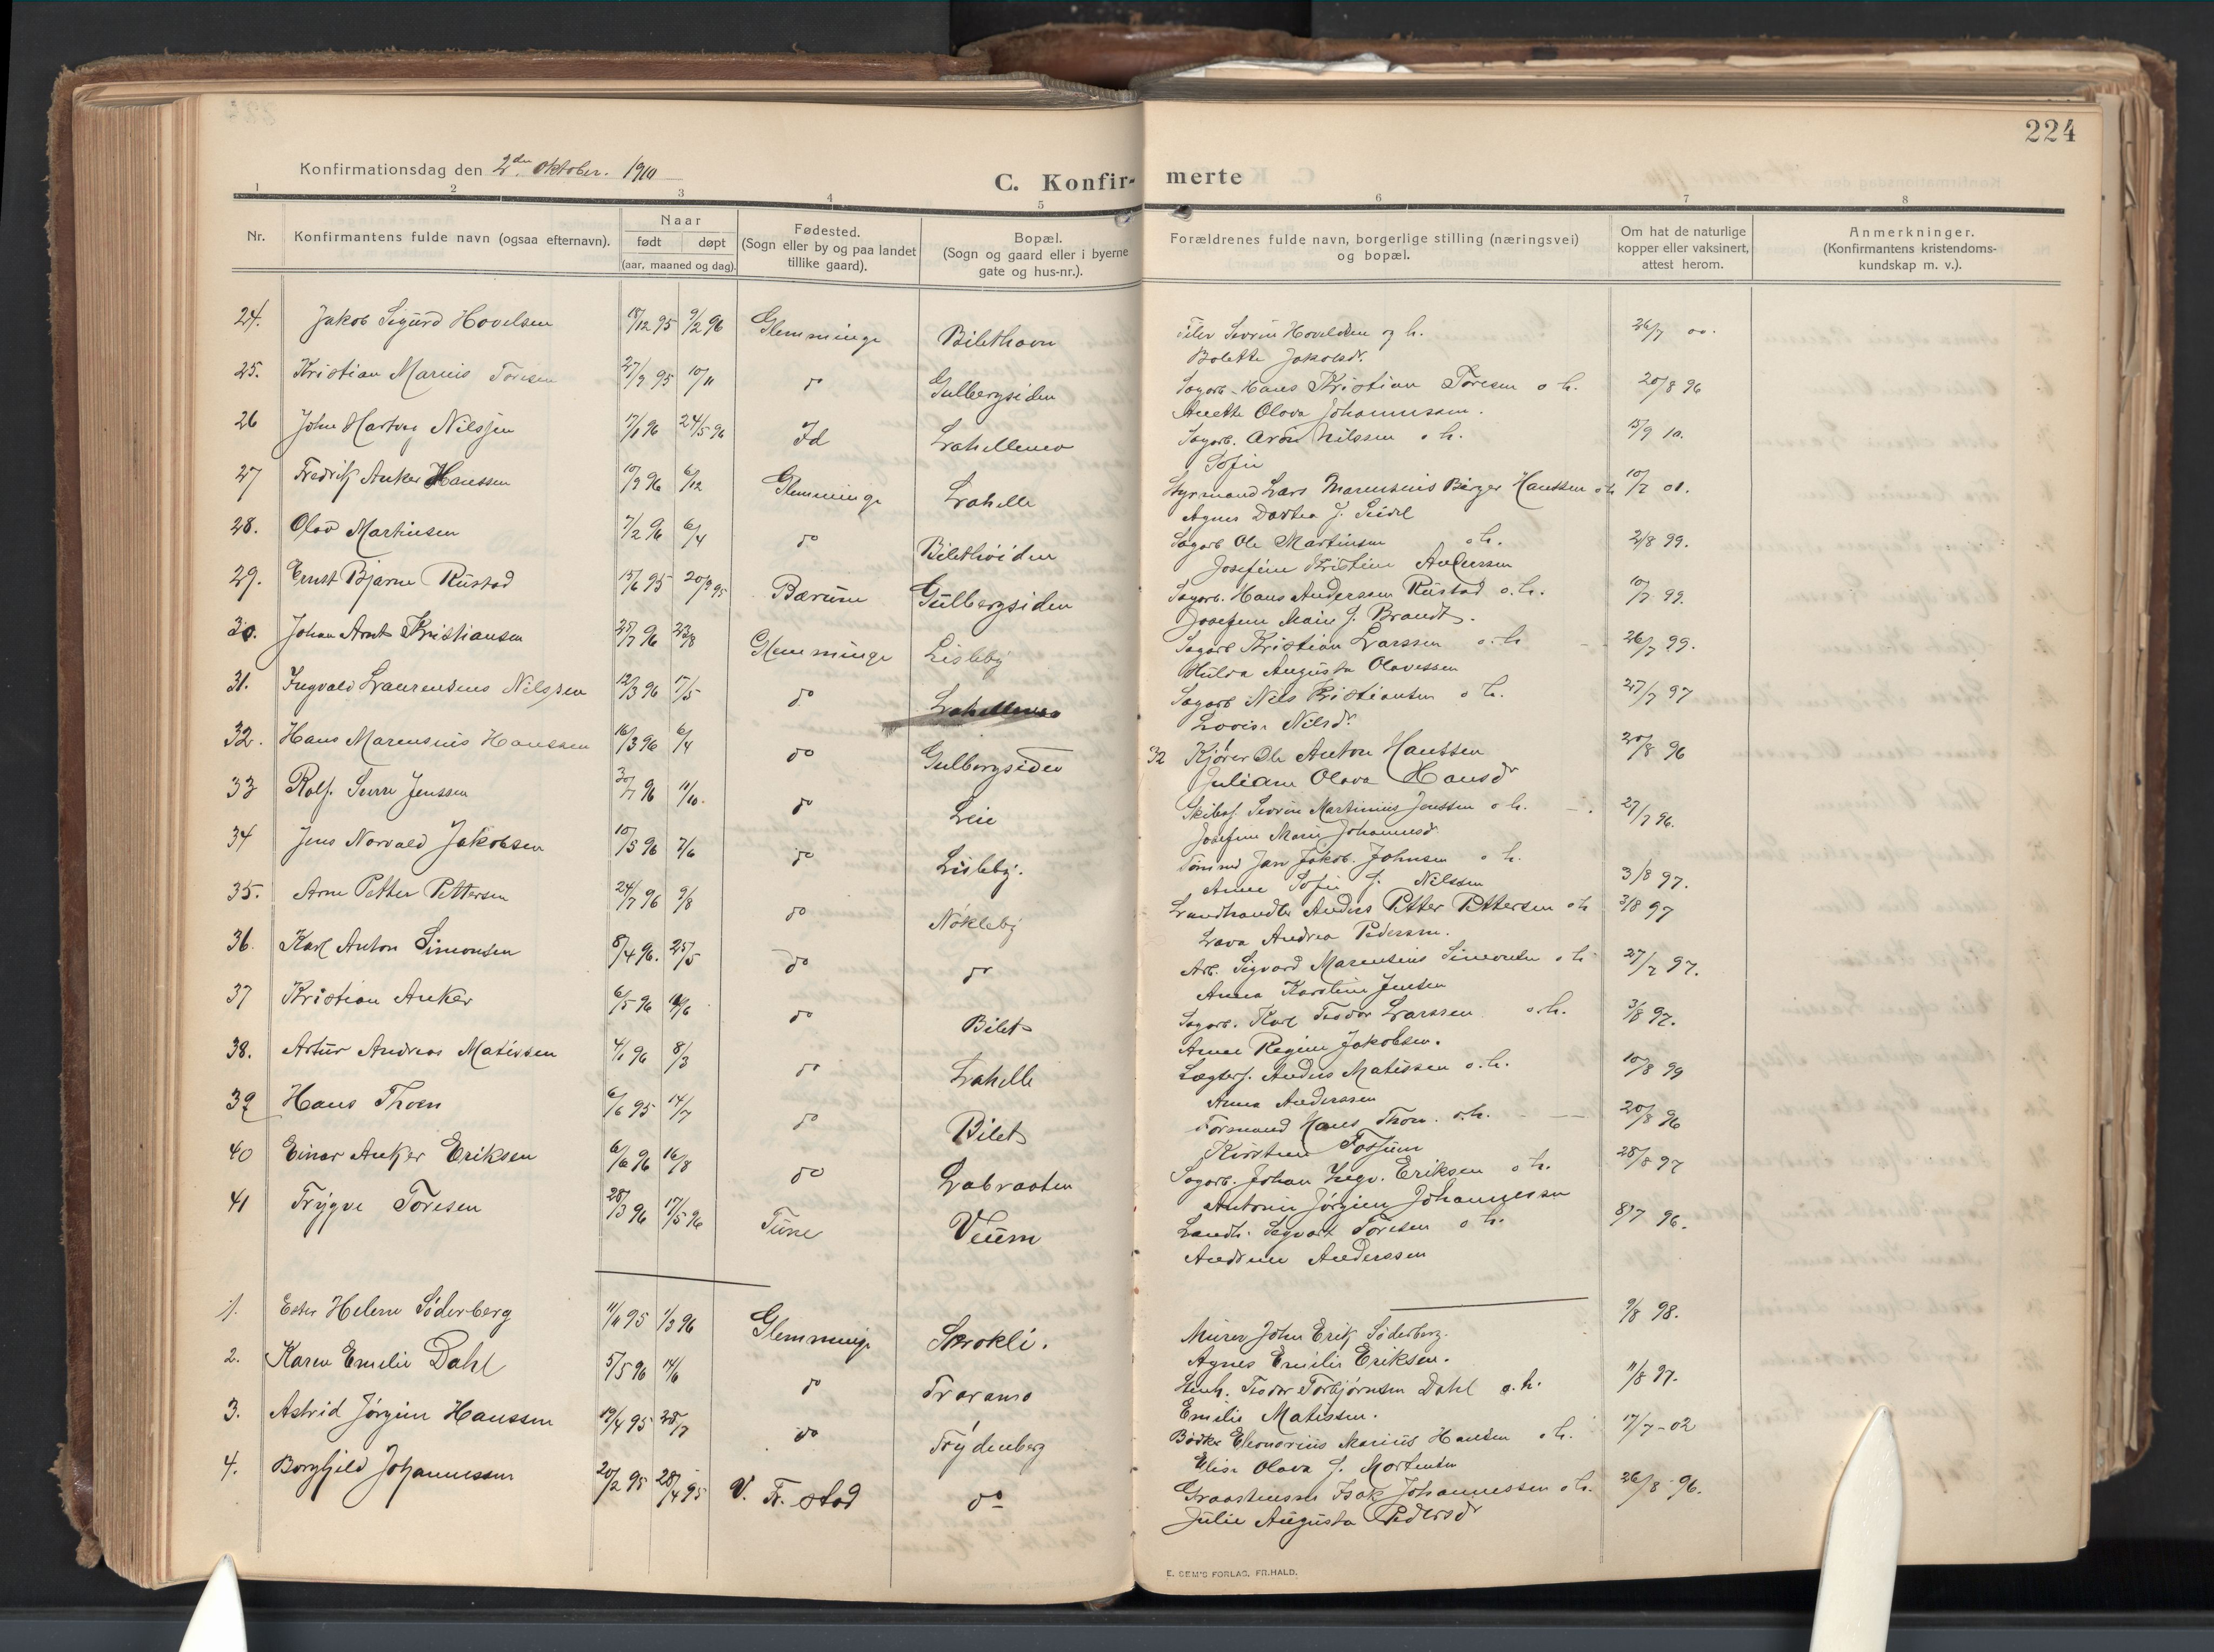 224
Konfirmationsdag den 2den Oktober. 1910
C. Konfirmerte
1 2 3 4 5 6 7 8
Nr.
Konfirmantens fulde navn (ogsaa efternavn).
Naar
født døpt
(aar, maaned og dag).
Fødested.
(Sogn eller by og paa landet
tillike gaard).
Bopæl.
(Sogn og gaard eller i byerne
gate og hus-nr.).
Forældrenes fulde navn, borgerlige stilling (næringsvei)
og bopæl.
Om hat de naturlige
kopper eller vaksinert,
attest herom.
Anmerkninger.
(Konfirmantens kristendoms-
kundskap m. v.).
24. Jakob Sigurd Hovelsen 18/12 95 9/2 96 Glemminge Bilethavn Severin Hovelsen og h. 26/7 00.
Bolette Jakobsdr.
25. Kristian Marius Toresen 27/9 95 10/11 do Gulbergsiden Sagarb. Hans Kristian Toresen o h. 20/8 96
Anette Olava Johannessen.
26 John Hartvig Nilssen 17/1 96 24/5 96 Id Lahellemo Sagarb. Aron Nilssen o h. 15/9 10.
Sofie
27 Fredrik Anker Hanssen 10/9 96 6/12 Glemminge Lahelle Styrmand Lars Marensius Birger Hanssen o h 10/7 01.
Agnes Dortea J. Seidel
28. Olav Martinsen 7/2 96 6/4 do Sagarb Ole Martinsen o h. 2/8 99.
Josefine Kristine Anderssen
29. Ernst Bjarne Rustad 15/6 95 20/9 95 Bærum Gulbergsiden Sagarb. Hans Anderssen Rustad o. h. 10/7 99.
Josefine Marie J. Brandt.
30. Johan Arnt Kristiansen 25/7 96 23/8 Glemminge Lisleby Sagarb Kristian Larssen o. h 26/7 99.
Hulda Augusta Olavessen
31. Ingvald Laurensius Nilssen 12/3 96 17/5 do Lahellemo Sagarb Nils Kristiansen o h. 27/7 97
Lovise Nilsdr.
32. Hans Marensius Hanssen 16/3 96 6/4 do Gulbergsiden 32 Kjører Ole Anton Hanssen 20/8 96
Juliane Olava Hansdr
33 Rolf Sverre Jenssen 30/7 96 11/10. do Leie Skibsf. Severin Martinius Jenssen o h. 27/7 96.
Josefine Marie Johannesdr
34 Jens Norvald Jakobsen 10/5 96 7/6 do Lisleby. Tømmd Jakob Johnsen o h. 3/8 97.
Anne Sofie J. Nilssen
35. Arne Petter Pettersen 24/7 96 9/8 do Nøkleby Landhandler Anders Petter Pettersen o h 3/8 97
Lava Andrea Pedersen.
36. Karl Anton Simonsen 8/4 96. 25/5 do do Arb. Sigvard Marensius Simonsen o h 27/7 97.
Anna Karoline Jensen
37 Kristian Anker 6/5 96 do Bilet Sagarb. Karl Teodor Larssen o. h. 3/8 97.
Anne Regine Jakobsen.
38. Artur Andreas Matissen 4/1 96 8/3 do Lahelle Lægterf. Anders Matissen o. h. 10/8 99
Anna Anderssen
39 Hans Thoen 6/6 95 14/7 do Bilet Formand Hans Thoen. o. h. 20/8 96
Kirstine Fossum
40 Einar Anker Eriksen 6/6 96 16/8 do Labraaten Sagarb. Johan Ingv. Eriksen o h. 28/8 97
Antonie Jørgine Johannessen
41 Trygve Toresen 28/3 96 17/5 96 Tune Veum Landh. Segvart Toresen o h. 8/7 96.
Andrine Anderssen
1. Ester Helene Søderberg 11/11 95 1/3 96 Glemminge Sorokli. Murer John Erik Søderberg. 9/8 98.
Agnes Emilie Eriksen.
2. Karen Emilie Dahl 5/5 96 14/6 do Traramo Stenh. Teodor Torbjørnsen Dahl o. h. 11/8 97.
Emilie Matissen.
3. Astrid Jørgine Hanssen 19/4 95 28/7 do Trydenberg Bødker Eleonorius Marius Hansen o h. 17/7-02
Elise Olava J. Mortensen
4. Borghild Johannessen 20/2 95 28/4 95 V. Fr. stad do Isak Johannessen o h. 26/8-96.
Julie Augusta Pedersdr
E. SEM'S FORLAG, FR.HALD.